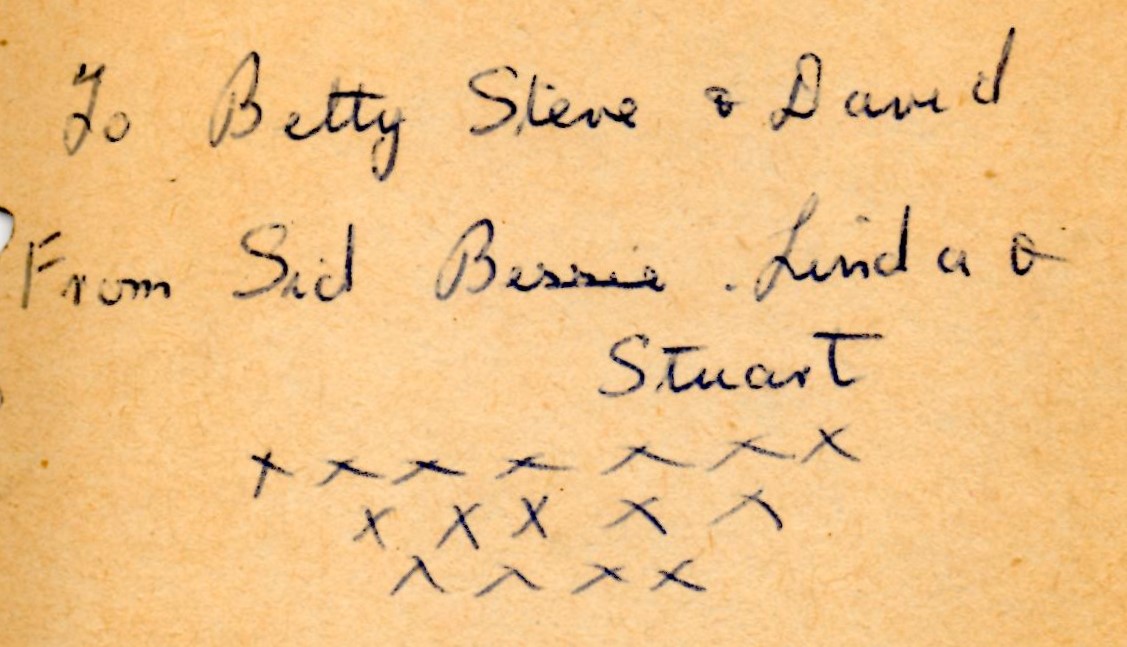 To Betty Steve & David
From Sid Bessie . Linda &
Stuart
x x x x x x x
x x x x x
x x x x